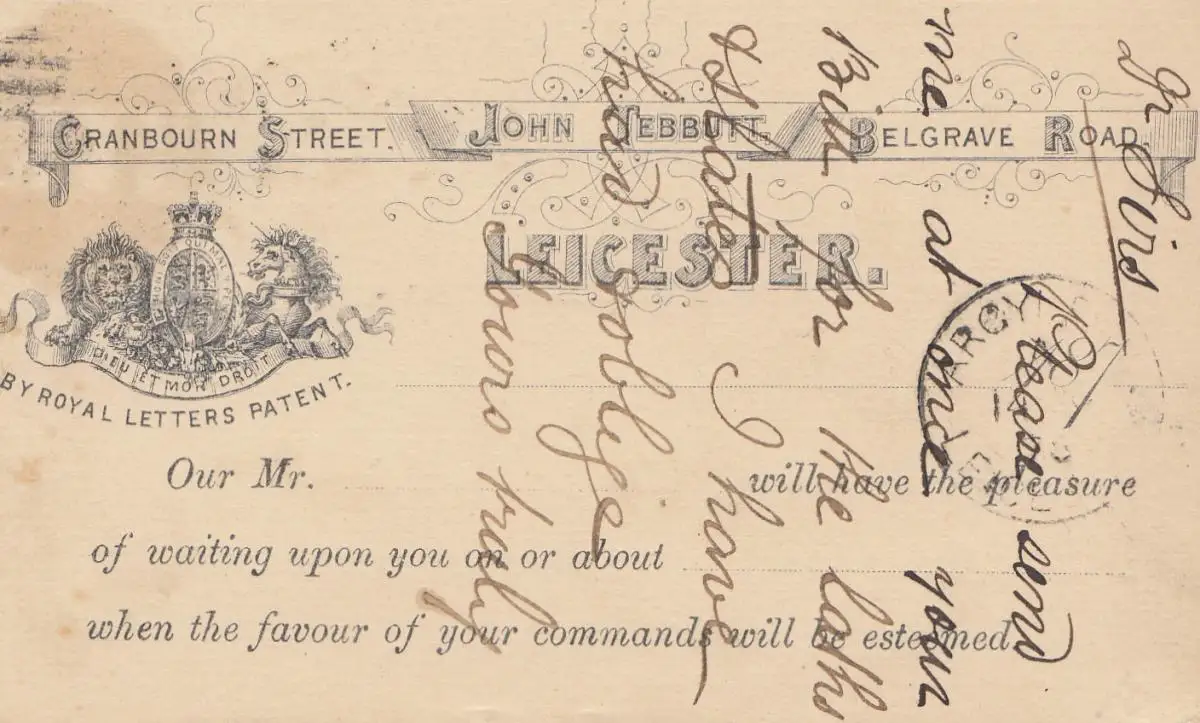 CRANBOURN STREET.
JOHN TEBBUTT.
BELGRAVE ROAD.
LEICESTER.
DIEU ET MON DROIT
BY ROYAL LETTERS PATENT.
Our Mr. will have the pleasure
of waiting upon you on or about
when the favour of your commands will be esteemed.
Dr Sirs
Please send
me at once your
Bill for the laths
& slates I have
had & oblige
Yours truly
ARGY